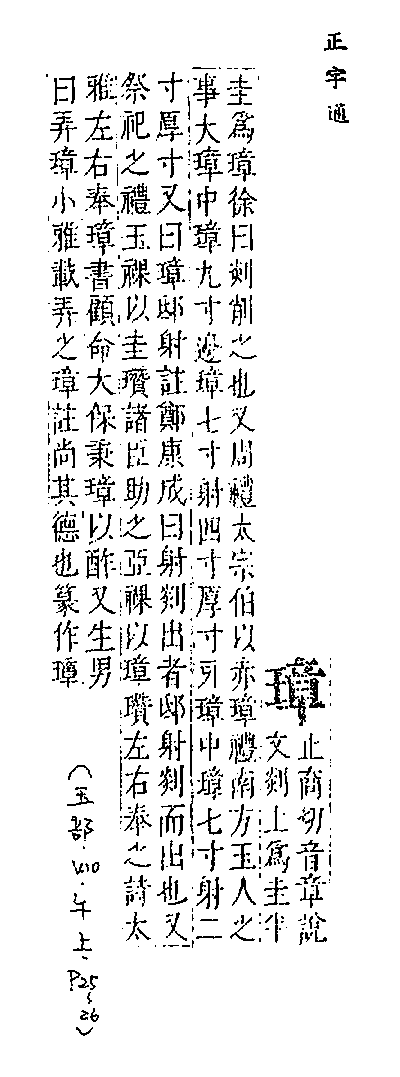 正字通
璋
止商切音章說
文剡上爲圭半
圭爲璋徐曰剡削之也又周禮太宗伯以赤璋禮南方玉人之
事大璋中璋九寸邊璋七寸射四寸厚寸牙璋中璋七寸射二
寸厚寸又曰璋邸射註鄭康成曰射剡出者邸射剡而出也又
祭祀之禮王祼以圭瓚諸臣助之亞祼以璋瓚左右奉之詩太
雅左右奉璋書顧命大保秉璋以酢又生男
曰弄璋小雅載弄之璋註尚其德也篆作璋
(玉部·V10·午上·P.25~26)